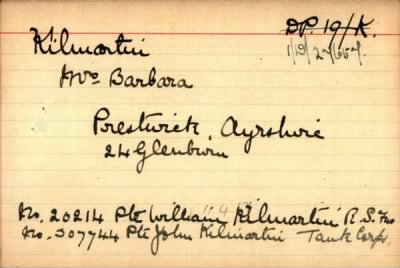 Kilmartin
DP. 19/K.
Mrs Barbara
Prestwick, Ayrshire
24 Glenburn
No. 20214 Pte William Kilmartin R.S. Fus
No. 307744 Pte John Kilmartin Tank Corps.